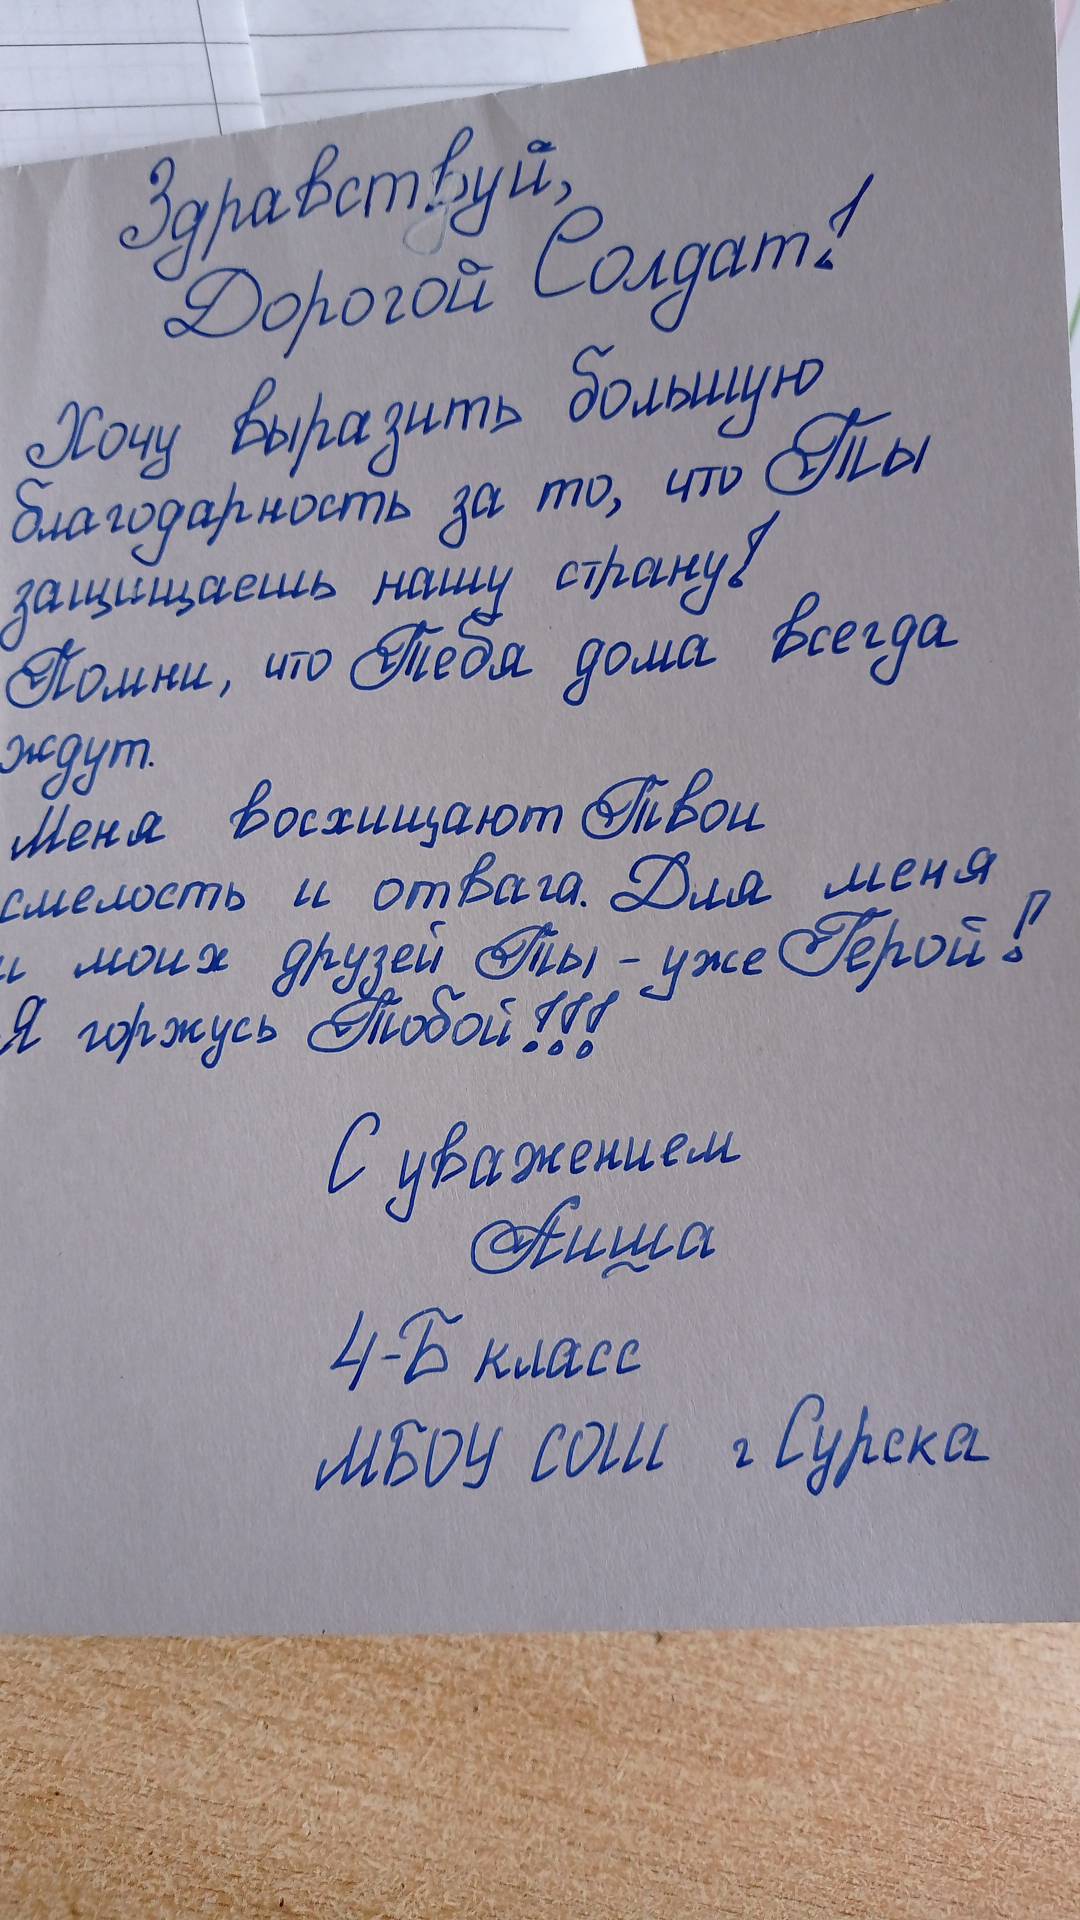 Здравствуй,
Дорогой Солдат!
Хочу выразить большую
благодарность за то, что Ты
защищаешь нашу страну!
Помни, что Тебя дома всегда
ждут.
Меня восхищают Твои
смелость и отвага. Для меня
и моих друзей Ты - уже Герой!
Я горжусь Тобой!!!
С уважением
Аиша
4-Б класс
МБОУ СОШ г Сурска